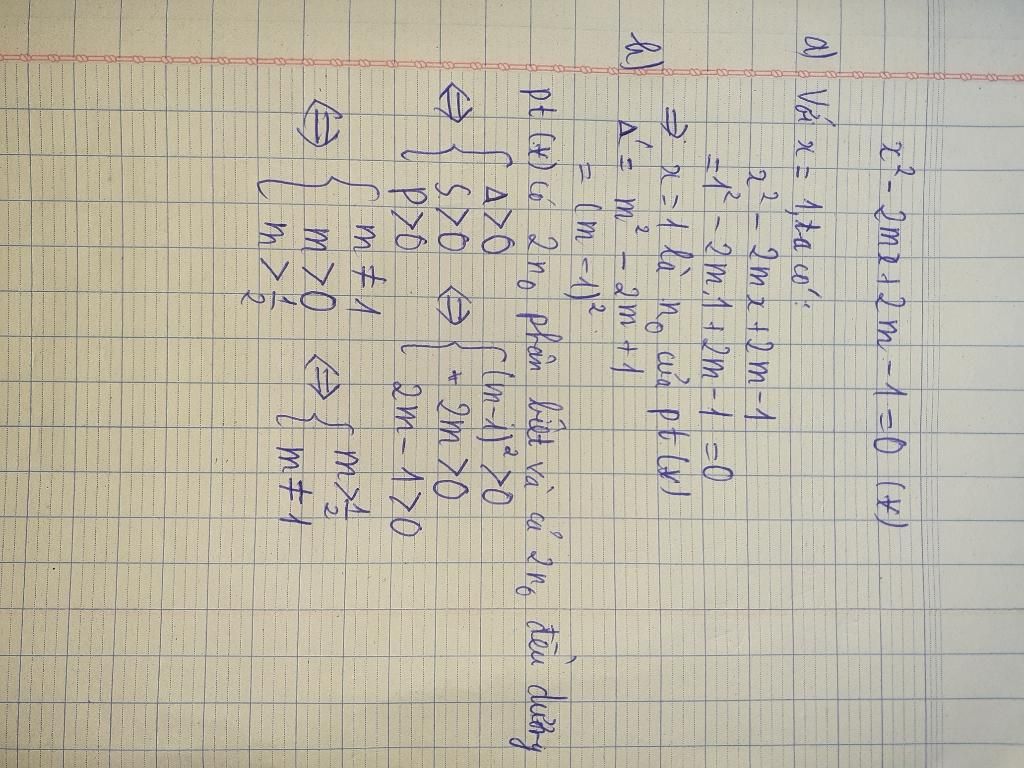 x² - 2mx + 2m - 1 = 0 (*)
a) Với x = 1, ta có:
x² - 2mx + 2m - 1
= 1² - 2m.1 + 2m - 1 = 0
⇒ x = 1 là n₀ của pt (*)
b) Δ' = m² - 2m + 1
= (m - 1)²
pt (*) có 2 n₀ phân biệt và cả 2 n₀ đều dương
⇔ { Δ > 0 ⇔ { (m-1)² > 0
S > 0 + 2m > 0
P > 0 2m - 1 > 0
⇔ { m ≠ 1 ⇔ { m > 1/2
m > 0 m ≠ 1
m > 1/2